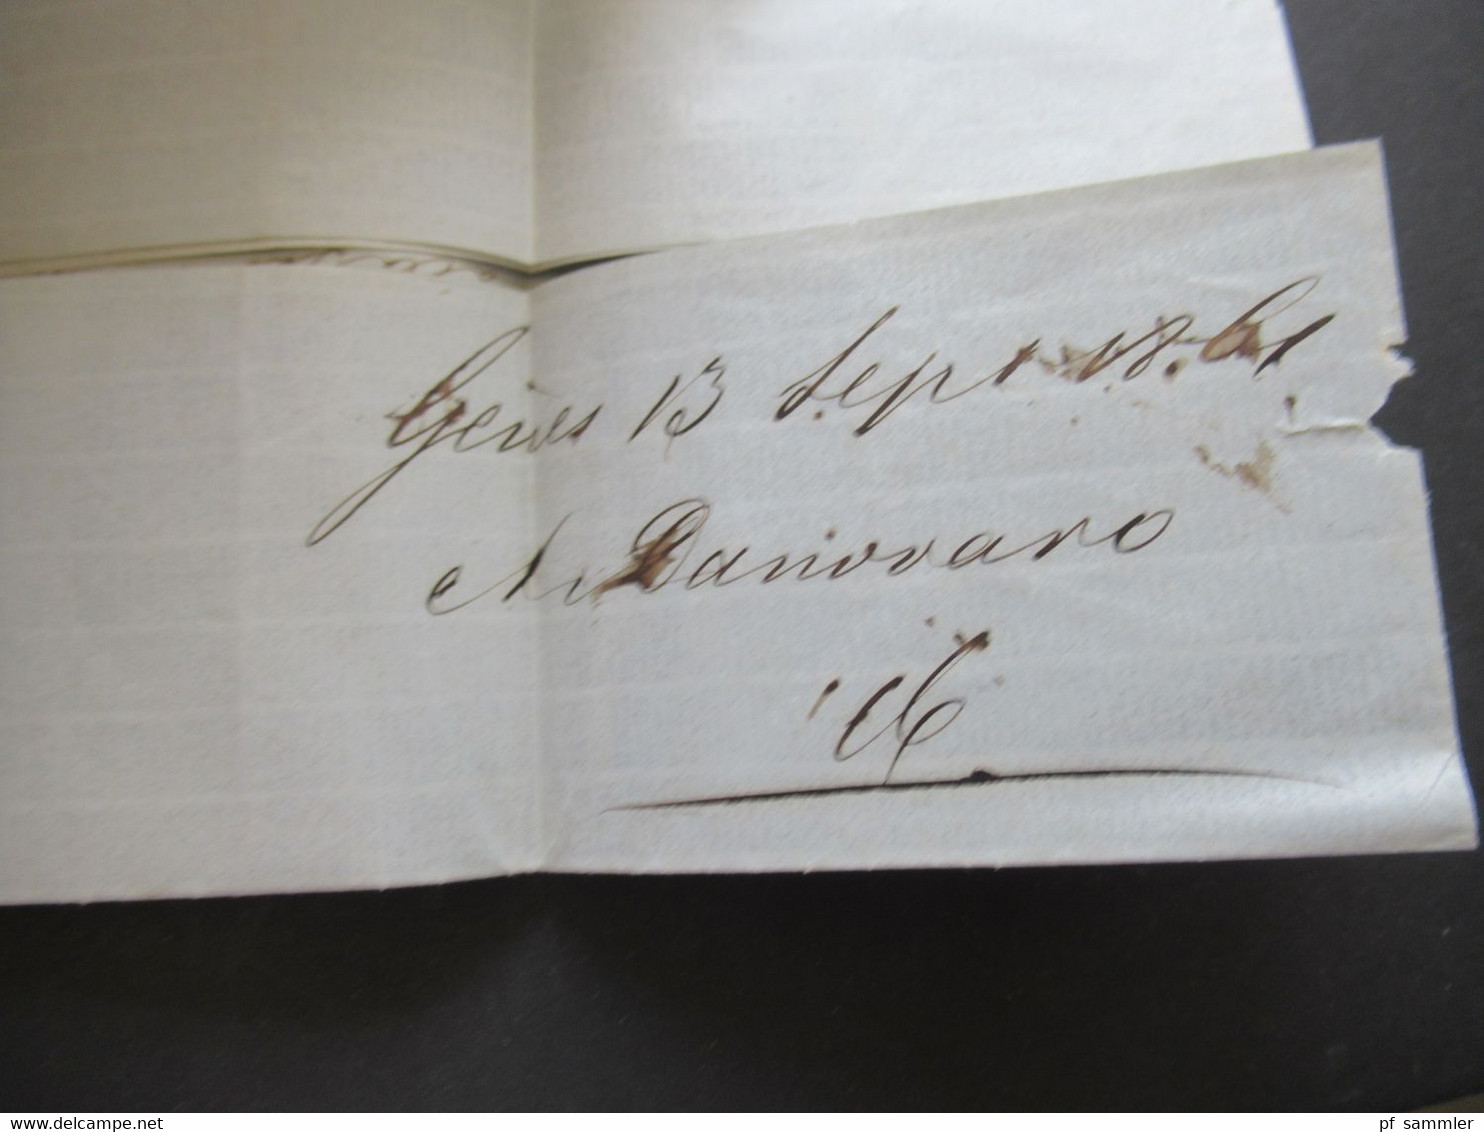 Gènes 13 Sept 1861
A. Danovaro
www.delcampe.net
pf_sammler